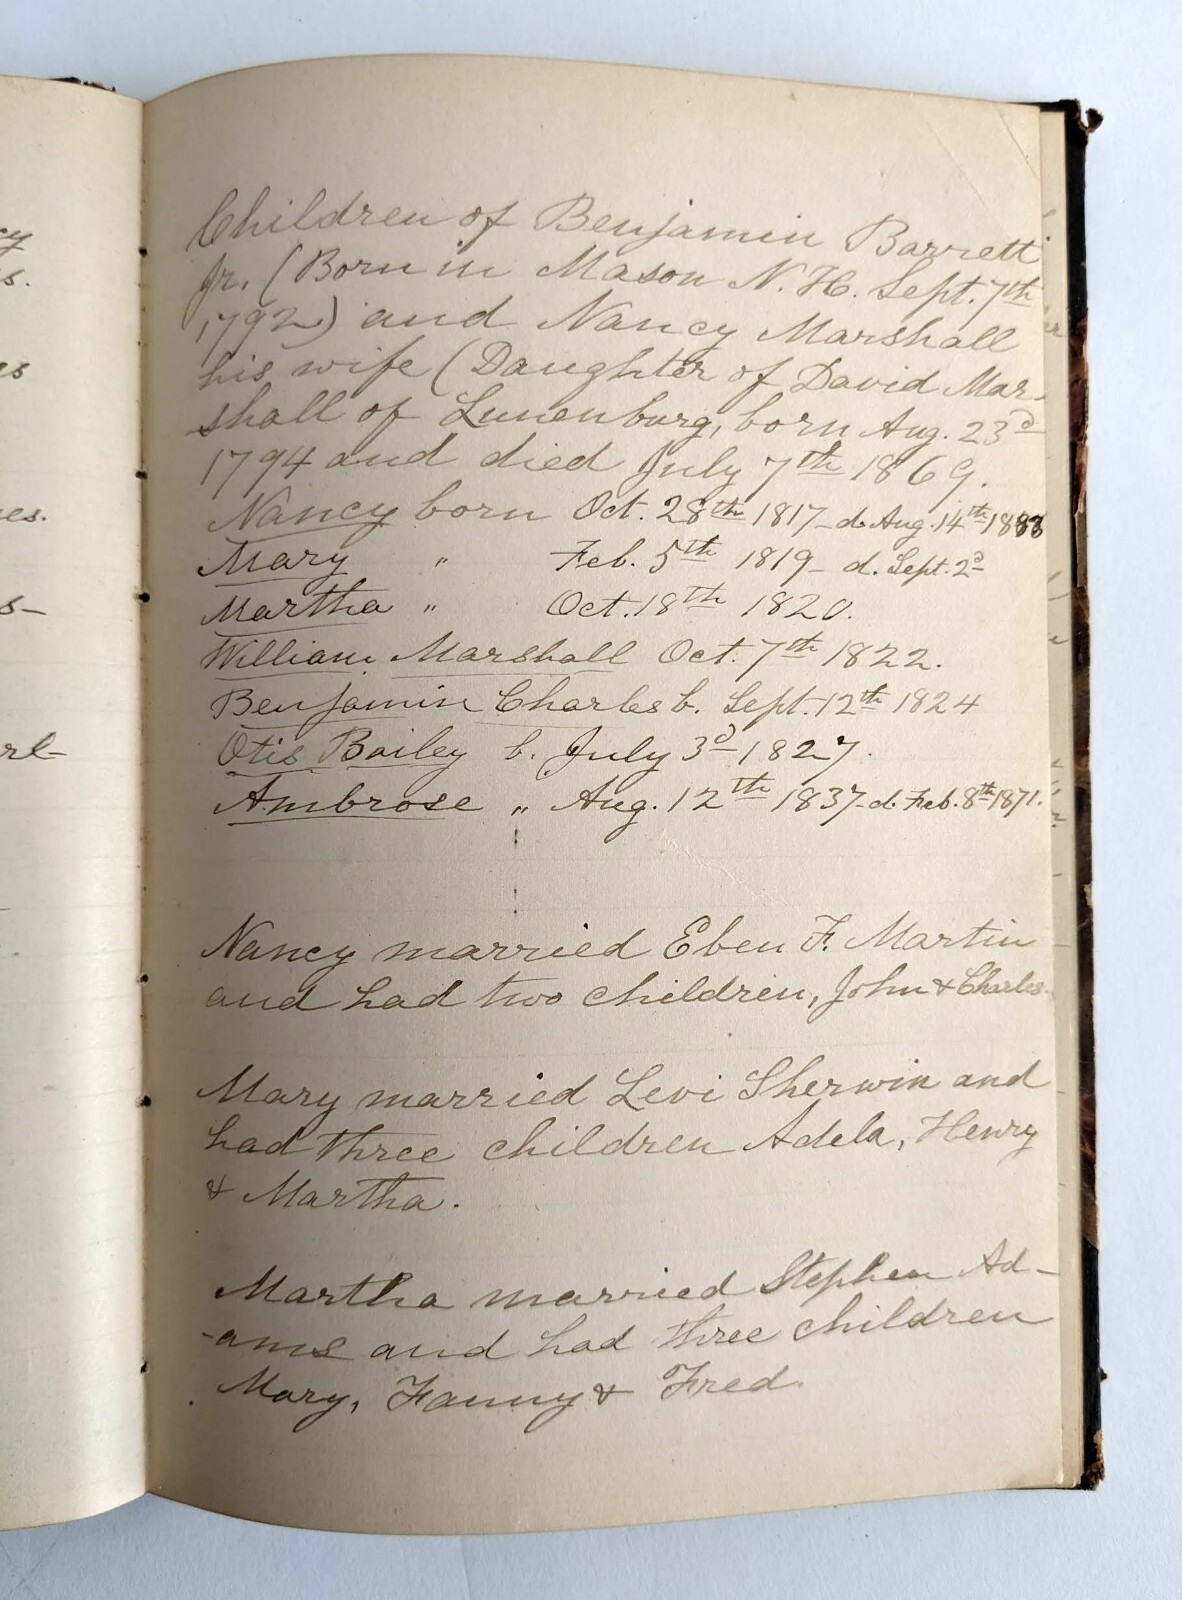 cy
s.
es
es.
s-
rl-
Children of Benjamin Barrett
Jr. (Born in Mason N. H. Sept. 7th
1792) and Nancy Marshall
his wife (Daughter of David Mar-
shall of Lunenburg, born Aug. 23d
1794 and died July 7th 1869.
Nancy born Oct. 28th 1817 - d. Aug. 14th 1888
Mary " Feb. 5th 1819 - d. Sept. 2d
Martha " Oct. 18th 1820.
William Marshall Oct. 7th 1822.
Benjamin Charles b. Sept. 12th 1824
Otis Bailey b. July 3d 1827.
Ambrose " Aug. 12th 1837 - d. Feb. 8th 1871.
Nancy married Eben F. Martin
and had two children, John & Charles.
Mary married Levi Sherwin and
had three children Adela, Henry
& Martha.
Martha married Stephen Ad-
-ams and had three children
Mary, Fanny & Fred.